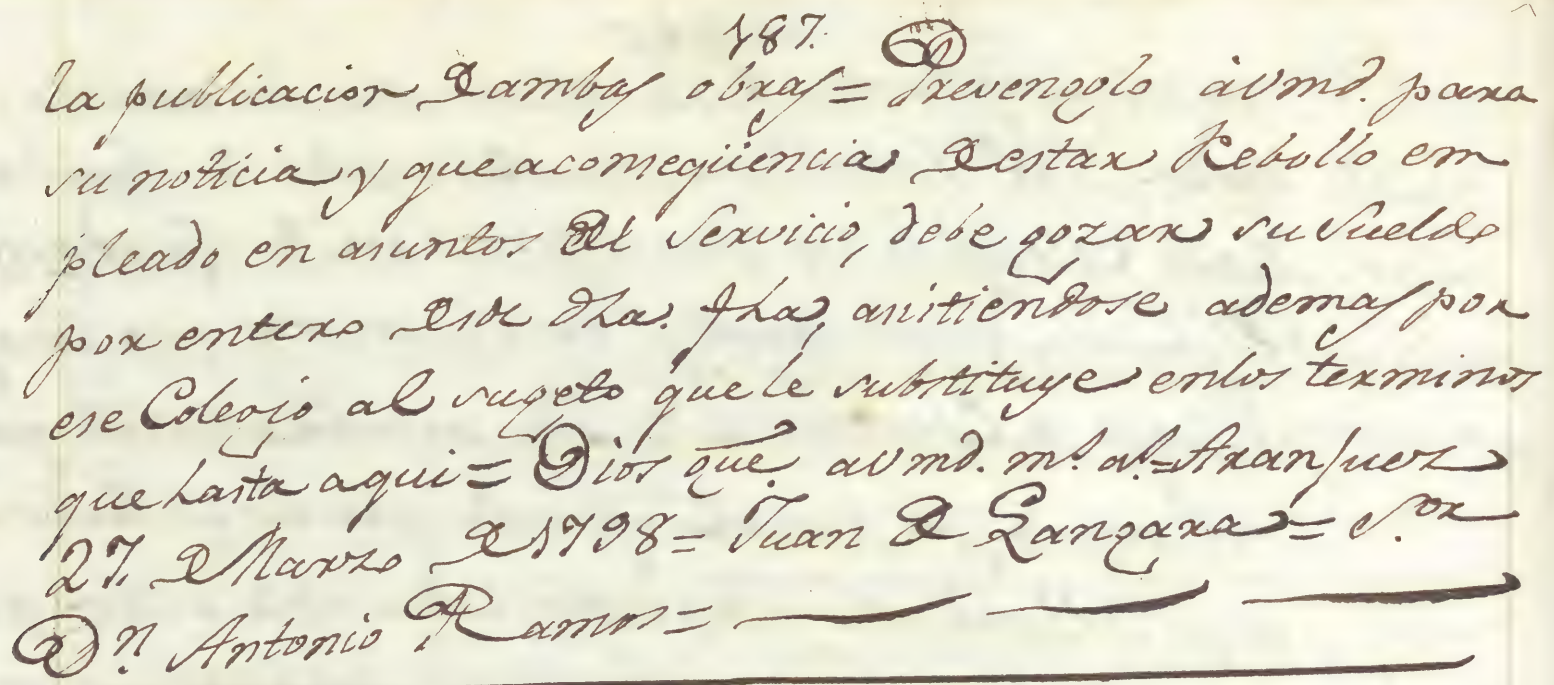 187.
la publicacion de ambas obras = Prevengolo à Vmd. para
su noticia y que a conseqüencia de estar Rebollo em
pleado en asuntos del Servicio, debe gozar su sueldo
por entero desde dha. fha, asistiendose ademas por
ese Colegio al sugeto que le substituye en los terminos
que hasta aqui = Dios gue. a Vmd. ms. as. = Aranjuez
27. de Marzo de 1798 = Juan de Langara = S.or
Dn. Antonio Ramos =